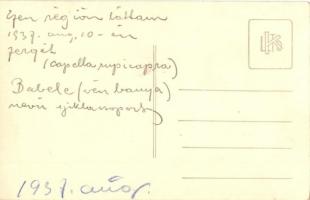 Ezen régión láttam
1937. aug. 10-én
zergét
(capella rupicapra)
Babele (vén banya)
nevű sziklacsoport
1937. aug.